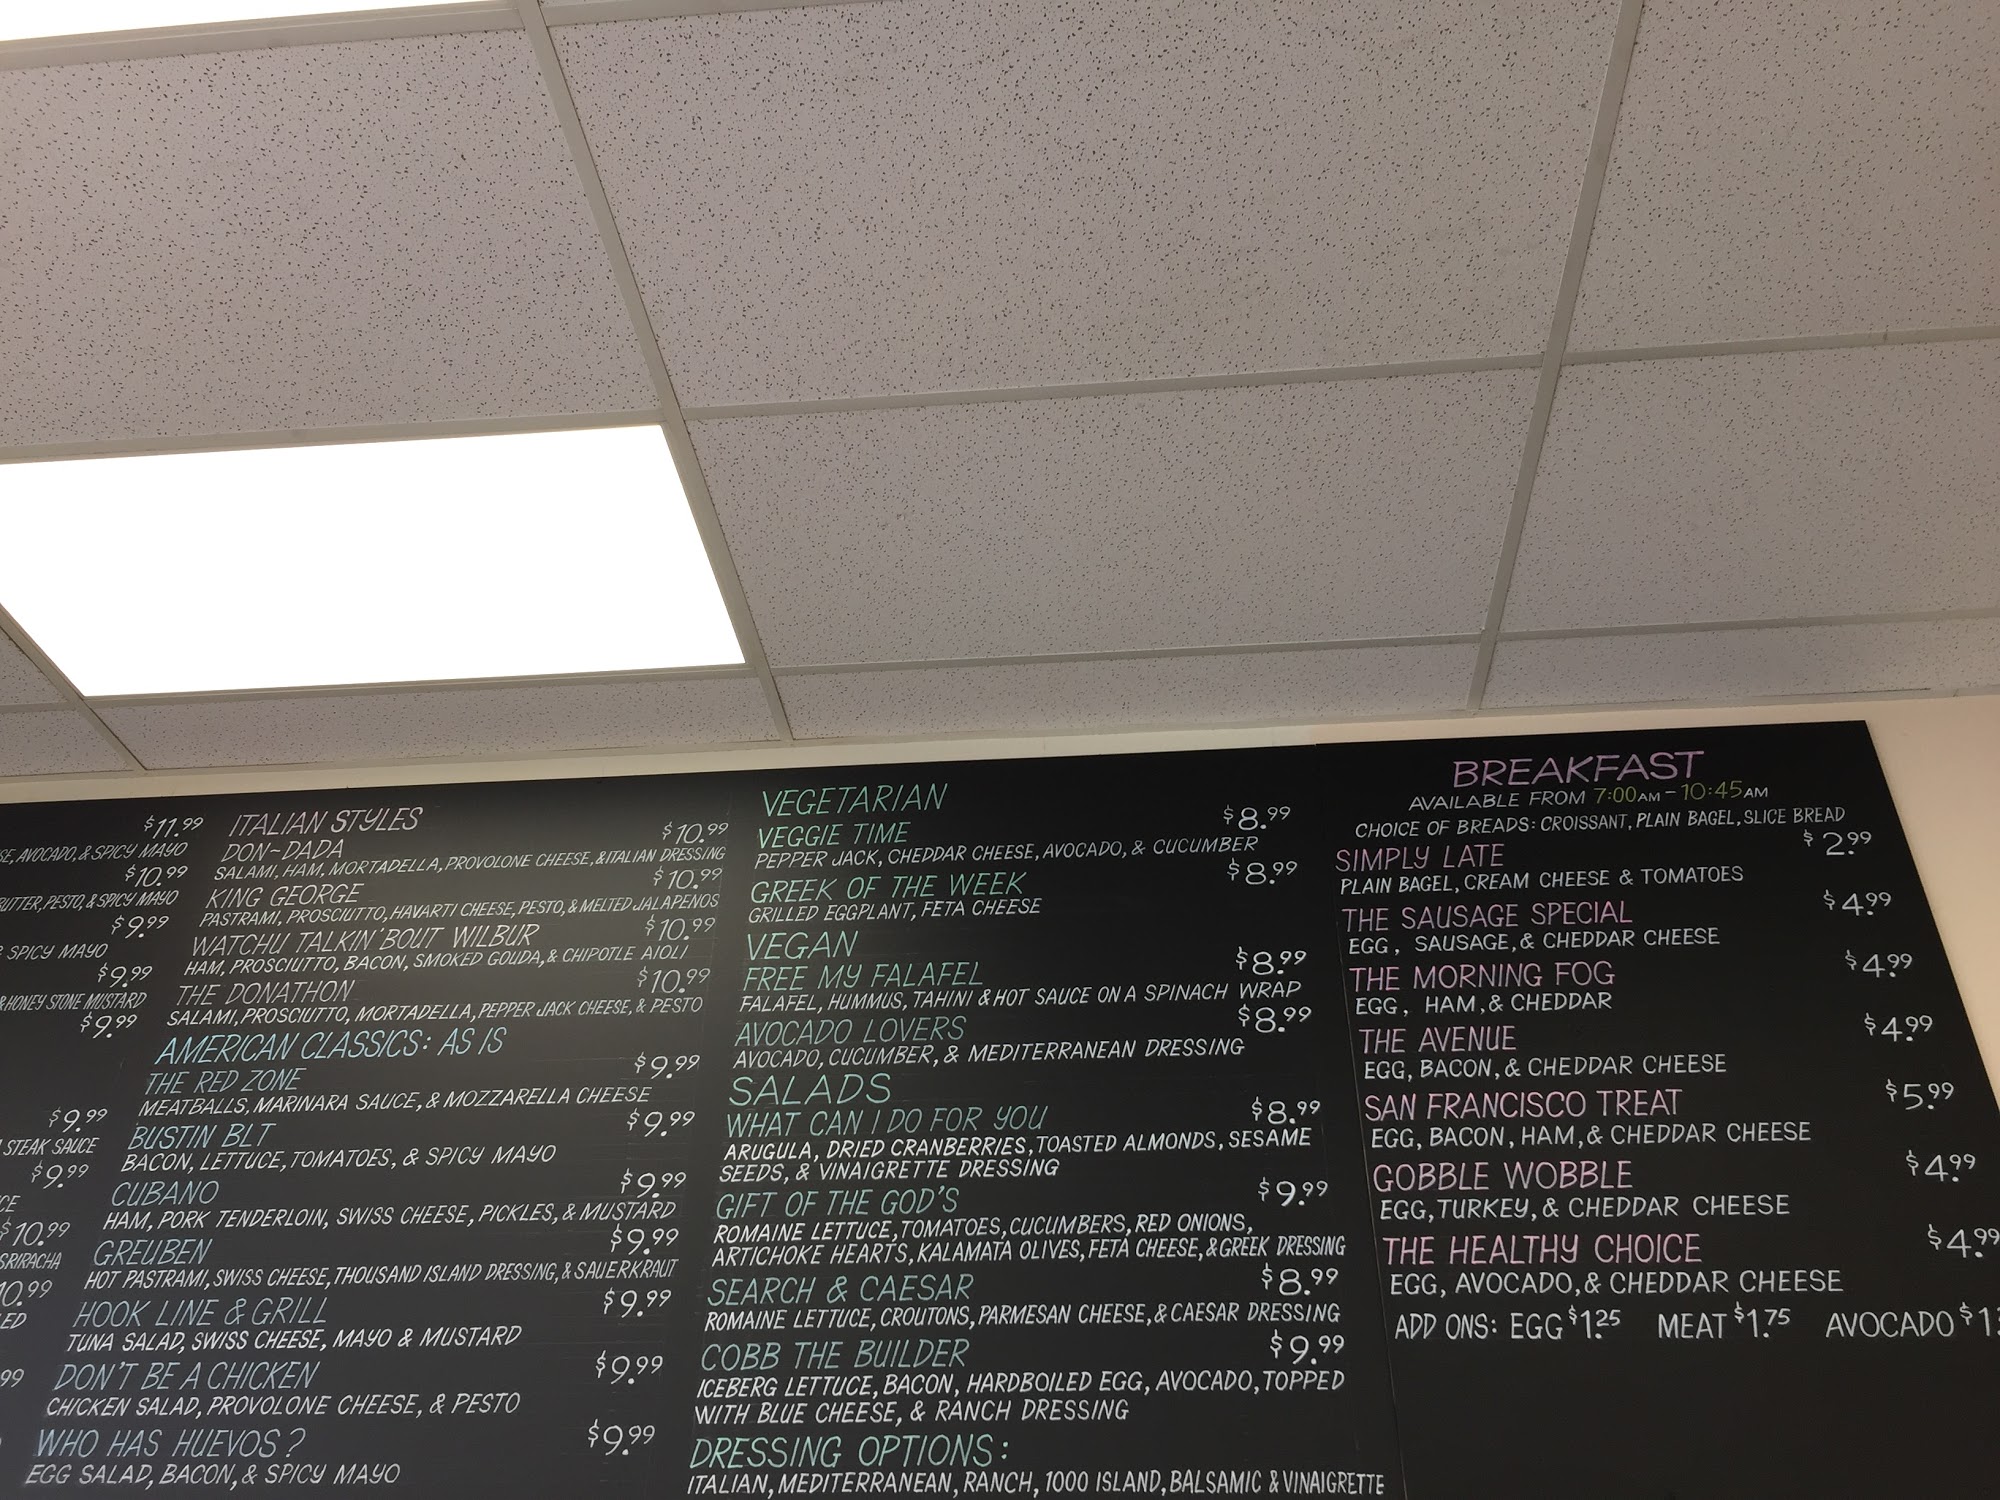 $11.99
AVOCADO, & SPICY MAYO
$10.99
BUTTER, PESTO, & SPICY MAYO
$9.99
& SPICY MAYO
$9.99
& HONEY STONE MUSTARD
$9.99
$9.99
STEAK SAUCE
$9.99
$10.99
SRIRACHA
ITALIAN STYLES
DON-DADA $10.99
SALAMI, HAM, MORTADELLA, PROVOLONE CHEESE, & ITALIAN DRESSING
KING GEORGE $10.99
PASTRAMI, PROSCIUTTO, HAVARTI CHEESE, PESTO, & MELTED JALAPENOS
WATCHU TALKIN' BOUT WILBUR $10.99
HAM, PROSCIUTTO, BACON, SMOKED GOUDA, & CHIPOTLE AIOLI
THE DONATHON $10.99
SALAMI, PROSCIUTTO, MORTADELLA, PEPPER JACK CHEESE, & PESTO
AMERICAN CLASSICS: AS IS
THE RED ZONE $9.99
MEATBALLS, MARINARA SAUCE, & MOZZARELLA CHEESE
BUSTIN BLT $9.99
BACON, LETTUCE, TOMATOES, & SPICY MAYO
CUBANO $9.99
HAM, PORK TENDERLOIN, SWISS CHEESE, PICKLES, & MUSTARD
GREUBEN $9.99
HOT PASTRAMI, SWISS CHEESE, THOUSAND ISLAND DRESSING, & SAUERKRAUT
HOOK LINE & GRILL $9.99
TUNA SALAD, SWISS CHEESE, MAYO & MUSTARD
DON'T BE A CHICKEN $9.99
CHICKEN SALAD, PROVOLONE CHEESE, & PESTO
WHO HAS HUEVOS? $9.99
EGG SALAD, BACON, & SPICY MAYO
VEGETARIAN
VEGGIE TIME $8.99
PEPPER JACK, CHEDDAR CHEESE, AVOCADO, & CUCUMBER
GREEK OF THE WEEK $8.99
GRILLED EGGPLANT, FETA CHEESE
VEGAN
FREE MY FALAFEL $8.99
FALAFEL, HUMMUS, TAHINI & HOT SAUCE ON A SPINACH WRAP
AVOCADO LOVERS $8.99
AVOCADO, CUCUMBER, & MEDITERRANEAN DRESSING
SALADS
WHAT CAN I DO FOR YOU $8.99
ARUGULA, DRIED CRANBERRIES, TOASTED ALMONDS, SESAME
SEEDS, & VINAIGRETTE DRESSING
GIFT OF THE GOD'S $9.99
ROMAINE LETTUCE, TOMATOES, CUCUMBERS, RED ONIONS,
ARTICHOKE HEARTS, KALAMATA OLIVES, FETA CHEESE, & GREEK DRESSING
SEARCH & CAESAR $8.99
ROMAINE LETTUCE, CROUTONS, PARMESAN CHEESE, & CAESAR DRESSING
COBB THE BUILDER $9.99
ICEBERG LETTUCE, BACON, HARDBOILED EGG, AVOCADO, TOPPED
WITH BLUE CHEESE, & RANCH DRESSING
DRESSING OPTIONS:
ITALIAN, MEDITERRANEAN, RANCH, 1000 ISLAND, BALSAMIC & VINAIGRETTE
BREAKFAST
AVAILABLE FROM 7:00AM - 10:45AM
CHOICE OF BREADS: CROISSANT, PLAIN BAGEL, SLICE BREAD
SIMPLY LATE $2.99
PLAIN BAGEL, CREAM CHEESE & TOMATOES
THE SAUSAGE SPECIAL $4.99
EGG, SAUSAGE, & CHEDDAR CHEESE
THE MORNING FOG $4.99
EGG, HAM, & CHEDDAR
THE AVENUE $4.99
EGG, BACON, & CHEDDAR CHEESE
SAN FRANCISCO TREAT $5.99
EGG, BACON, HAM, & CHEDDAR CHEESE
GOBBLE WOBBLE $4.99
EGG, TURKEY, & CHEDDAR CHEESE
THE HEALTHY CHOICE $4.99
EGG, AVOCADO, & CHEDDAR CHEESE
ADD ONS: EGG $1.25 MEAT $1.75 AVOCADO